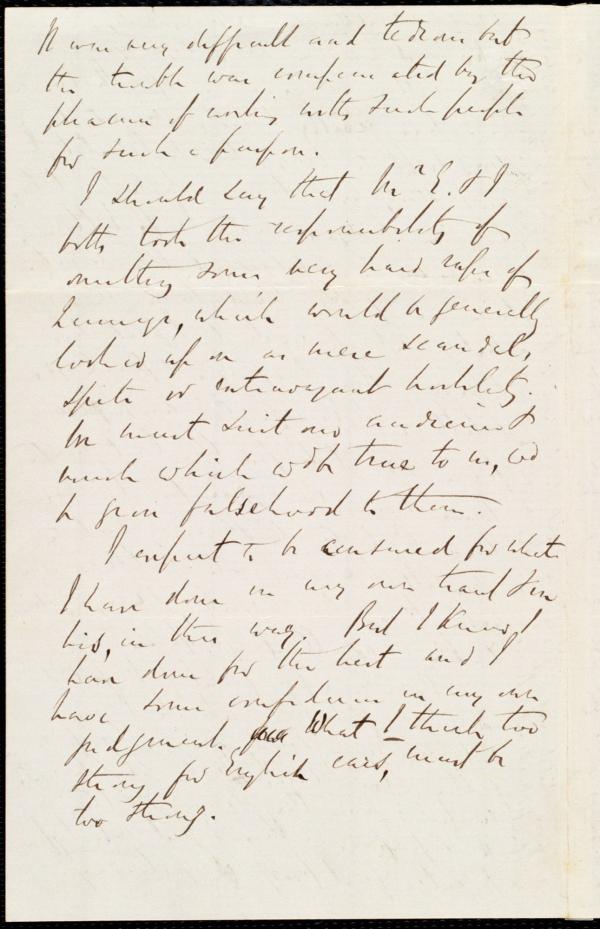 It was very difficult and tedious but
the trouble was compensated by the
pleasure of working with such people
for such a purpose.
I should say that Mr E. & I
both took the responsibility of
omitting some very hard raps of
which would be generally
looked upon as mere scandal,
spite or extravagant hostility.
We must suit our audience &
much which wd be true to us, wd
be gross falsehood to them.
I expect to be censured for what
I have done in my own tract & in
his, in this way. But I know I
have done for the best and I
have some confidence in my own
judgment. What I think too
strong for English ears, must be
too strong.